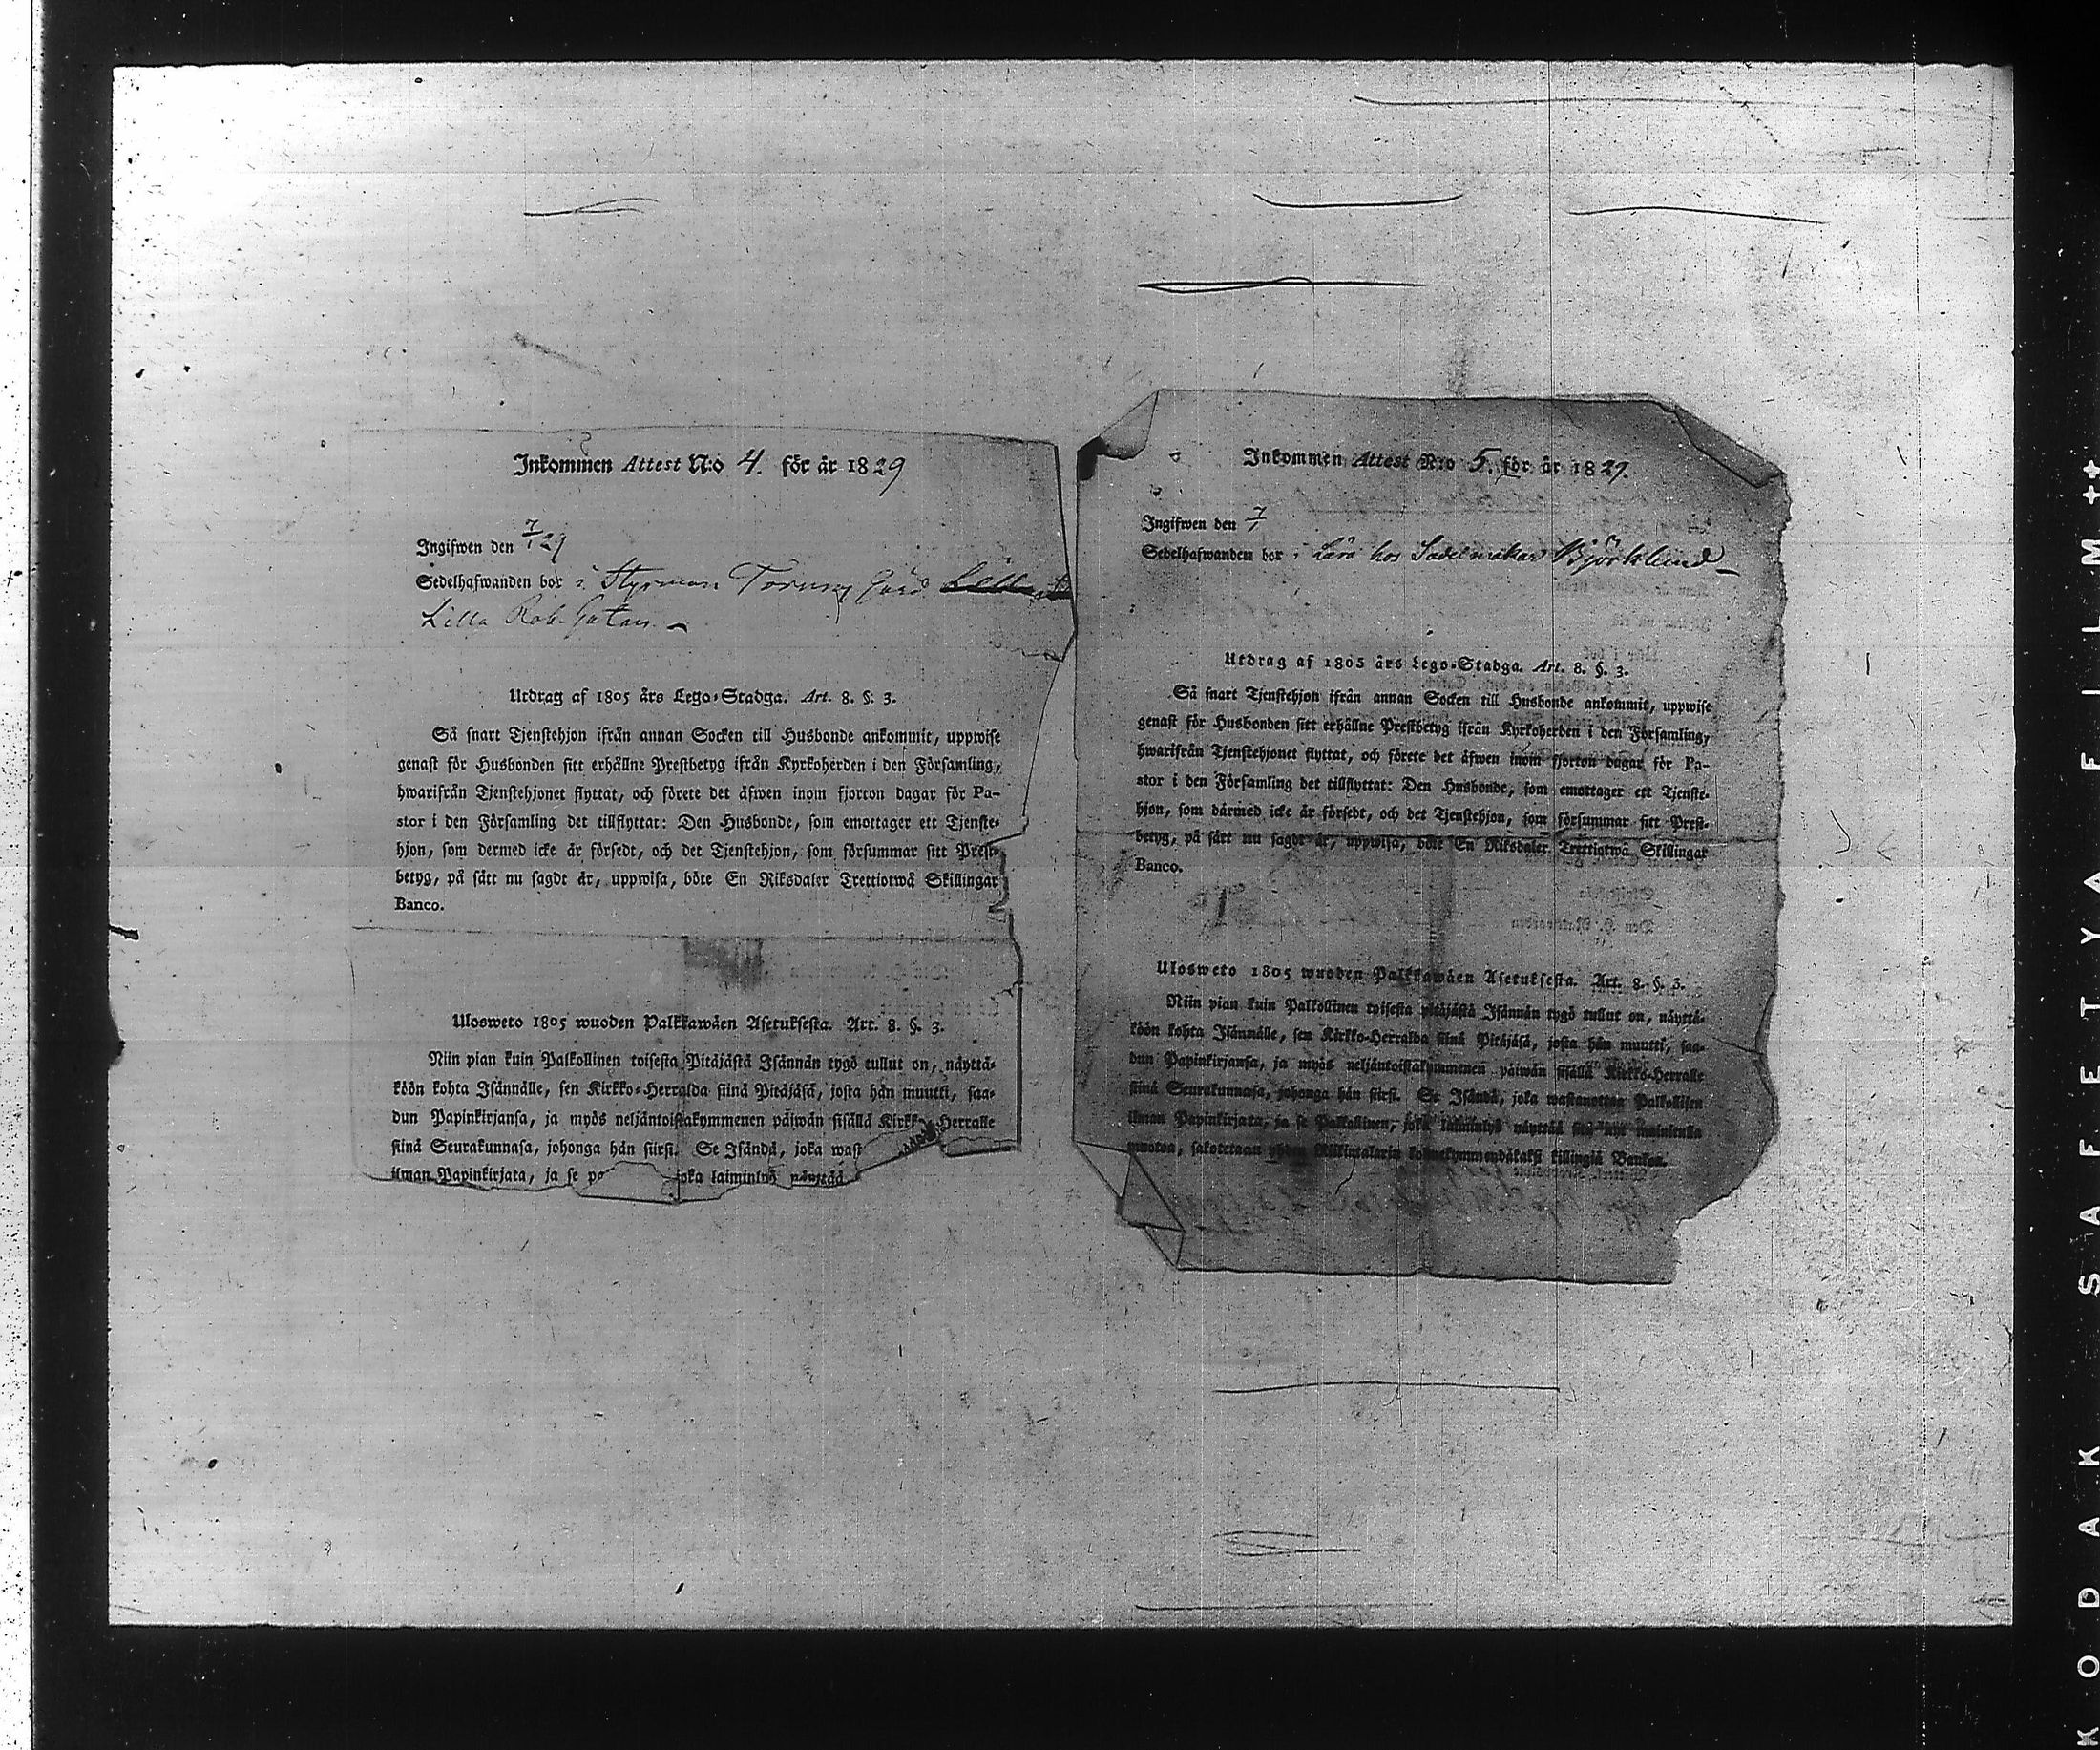 Inkommen Attest N:o 4. för år 1829
Ingifwen den 7/1 29
Sedelhafwanden bor i Styrman Tornny Gård
Lilla Rob. Gatan. –
Utdrag af 1805 års Lego-Stadga. Art. 8. §. 3.
Så snart Tjenstehjon ifrån annan Socken till Husbonde ankommit, uppwise
genast för Husbonden sitt erhållne Prestbetyg ifrån Kyrkoherden i den Församling,
hwarifrån Tjenstehjonet flyttat, och förete det äfwen inom fjorton dagar för Pa-
stor i den Församling det tillflyttat: Den Husbonde, som emottager ett Tjenste-
hjon, som dermed icke är försedt, och det Tjenstehjon, som försummar sitt Prest-
betyg, på sätt nu sagdt är, uppwisa, böte En Riksdaler Trettiotwå Skillingar
Banco.
Ulosweto 1805 wuoden Palkkawäen Asetuksesta. Art. 8. §. 3.
Niin pian kuin Palkollinen toisesta Pitäjästä Isännän tygö tullut on, näyttä-
köön kohta Isännälle, sen Kirkko-Herralda siinä Pitäjäsä, josta hän muutti, saa-
dun Papinkirjansa, ja myös neljäntoistakymmenen päiwän sisällä Kirkko-Herralle
siinä Seurakunnasa, johonga hän siirsi. Se Isändä, joka wast
ilman Papinkirjata, ja se pa joka laiminlyö näyttää
Inkommen Attest N:o 5. för år 1829.
Ingifwen den 7/1
Sedelhafwanden bor i Lära hos Sadelmakar Björklund –
Utdrag af 1805 års Lego-Stadga. Art. 8. §. 3.
Så snart Tjenstehjon ifrån annan Socken till Husbonde ankommit, uppwise
genast för Husbonden sitt erhållne Prestbetyg ifrån Kyrkoherden i den Församling,
hwarifrån Tjenstehjonet flyttat, och förete det äfwen inom fjorton dagar för Pa-
stor i den Församling det tillflyttat: Den Husbonde, som emottager ett Tjenste-
hjon, som därmed icke är försedt, och det Tjenstehjon, som försummar sitt Prest-
betyg, på sätt nu sagdt är, uppwisa, böte En Riksdaler Trettiotwå Skillingar
Banco.
Ulosweto 1805 wuoden Palkkawäen Asetuksesta. Art. 8. §. 3.
Niin pian kuin Palkollinen toisesta pitäjästä Isännän tygö tullut on, näyttä-
köön kohta Isännälle, sen Kirkko-Herralda siinä Pitäjäsä, josta hän muutti, saa-
dun Papinkirjansa, ja myös neljäntoistakymmenen päiwän sisällä Kirkko-Herralle
siinä Seurakunnasa, johonga hän siirsi. Se Isändä, joka wastanottaa Palkollisen
ilman Papinkirjata, ja se Palkollinen, joka laiminlyö näyttää sitä nyt mainitulla
muotoa, sakotetaan yhden Riikintalarin kolmekymmendäkaksi killingiä Bankoa.
KODAK SAFETY A FILM ++